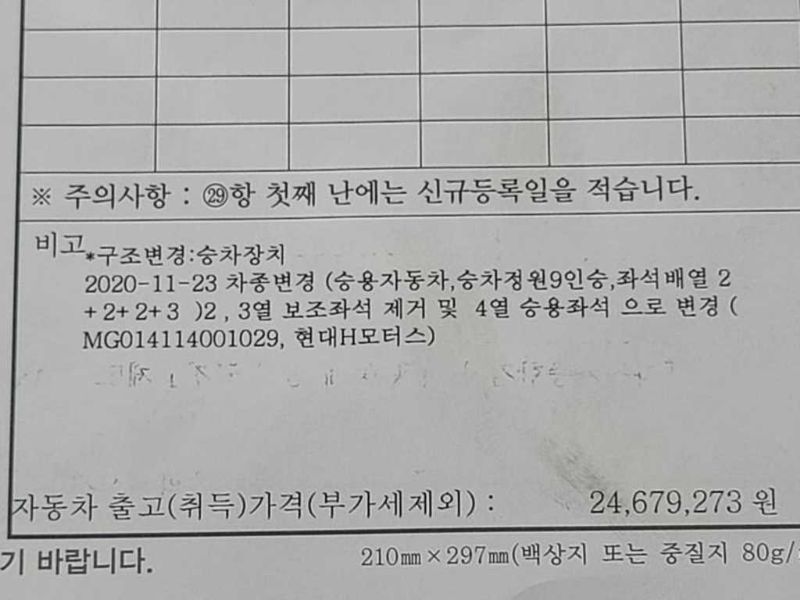 ※ 주의사항 : ㉙항 첫째 난에는 신규등록일을 적습니다.
비고 *구조변경:승차장치
2020-11-23 차종변경 (승용자동차,승차정원9인승,좌석배열 2
+2+2+3 )2 , 3열 보조좌석 제거 및 4열 승용좌석 으로 변경 (
MG014114001029, 현대H모터스)
자동차 출고(취득)가격(부가세제외) : 24,679,273 원
기 바랍니다. 210㎜×297㎜(백상지 또는 중질지 80g/